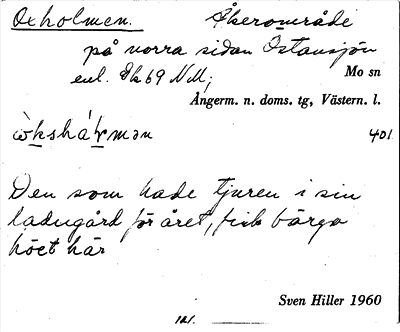 Oxholmen. Åkerområde
på norra sidan Östansjön
enl. Ek 69 NM;
Mo sn
Ångerm. n. doms. tg, Västern. l.
401
Den som hade tjuren i sin
ladugård för året, fick bärga
höet här
Sven Hiller 1960
121.